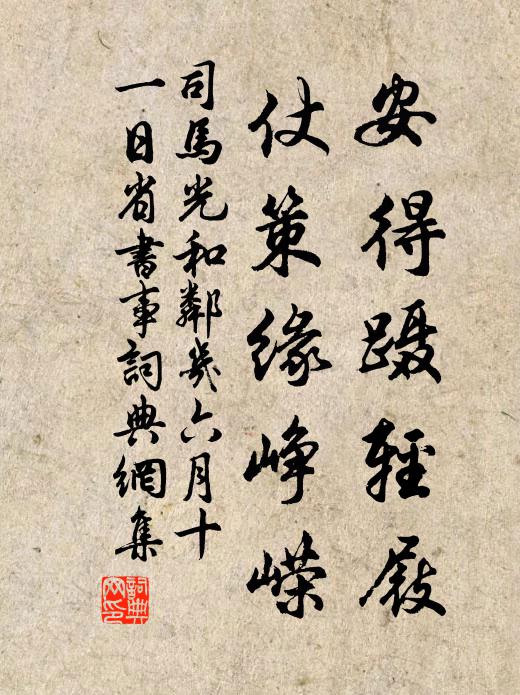 安得蹑輕屐
仗策緣峥嶸
司馬光和鄰幾六月十
一日省書事詞典網集
詞典
網印